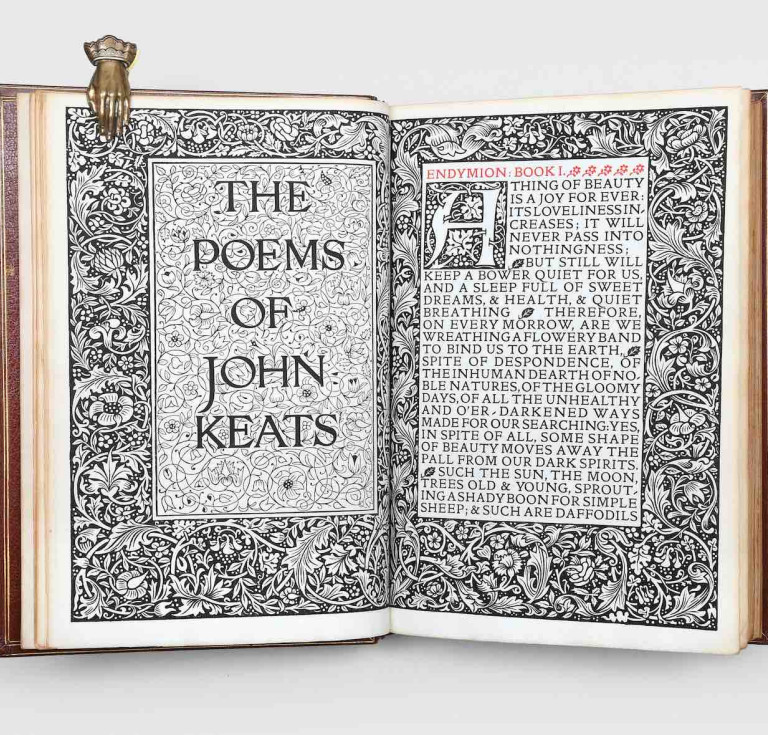 THE
POEMS
OF
JOHN
KEATS
ENDYMION: BOOK I.
A THING OF BEAUTY
IS A JOY FOR EVER:
ITS LOVELINESS IN-
CREASES; IT WILL
NEVER PASS INTO
NOTHINGNESS;
BUT STILL WILL
KEEP A BOWER QUIET FOR US,
AND A SLEEP FULL OF SWEET
DREAMS, & HEALTH, & QUIET
BREATHING. THEREFORE,
ON EVERY MORROW, ARE WE
WREATHING A FLOWERY BAND
TO BIND US TO THE EARTH,
SPITE OF DESPONDENCE, OF
THE INHUMAN DEARTH OF NO-
BLE NATURES, OF THE GLOOMY
DAYS, OF ALL THE UNHEALTHY
AND O'ER-DARKENED WAYS
MADE FOR OUR SEARCHING: YES,
IN SPITE OF ALL, SOME SHAPE
OF BEAUTY MOVES AWAY THE
PALL FROM OUR DARK SPIRITS.
SUCH THE SUN, THE MOON,
TREES OLD & YOUNG, SPROUT-
ING A SHADY BOON FOR SIMPLE
SHEEP; & SUCH ARE DAFFODILS